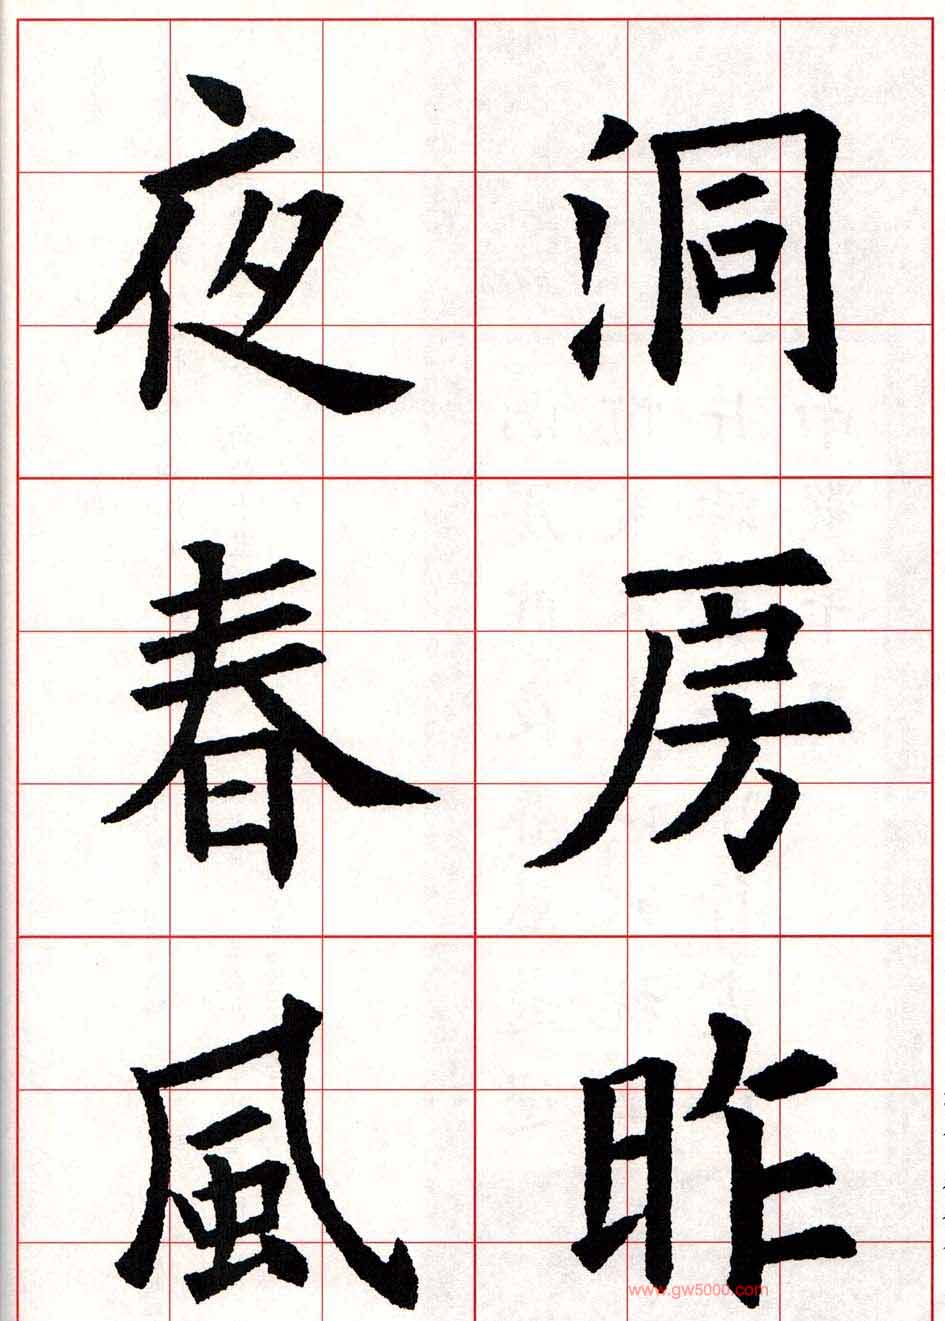 洞房昨
夜春風
www.gw5000.com